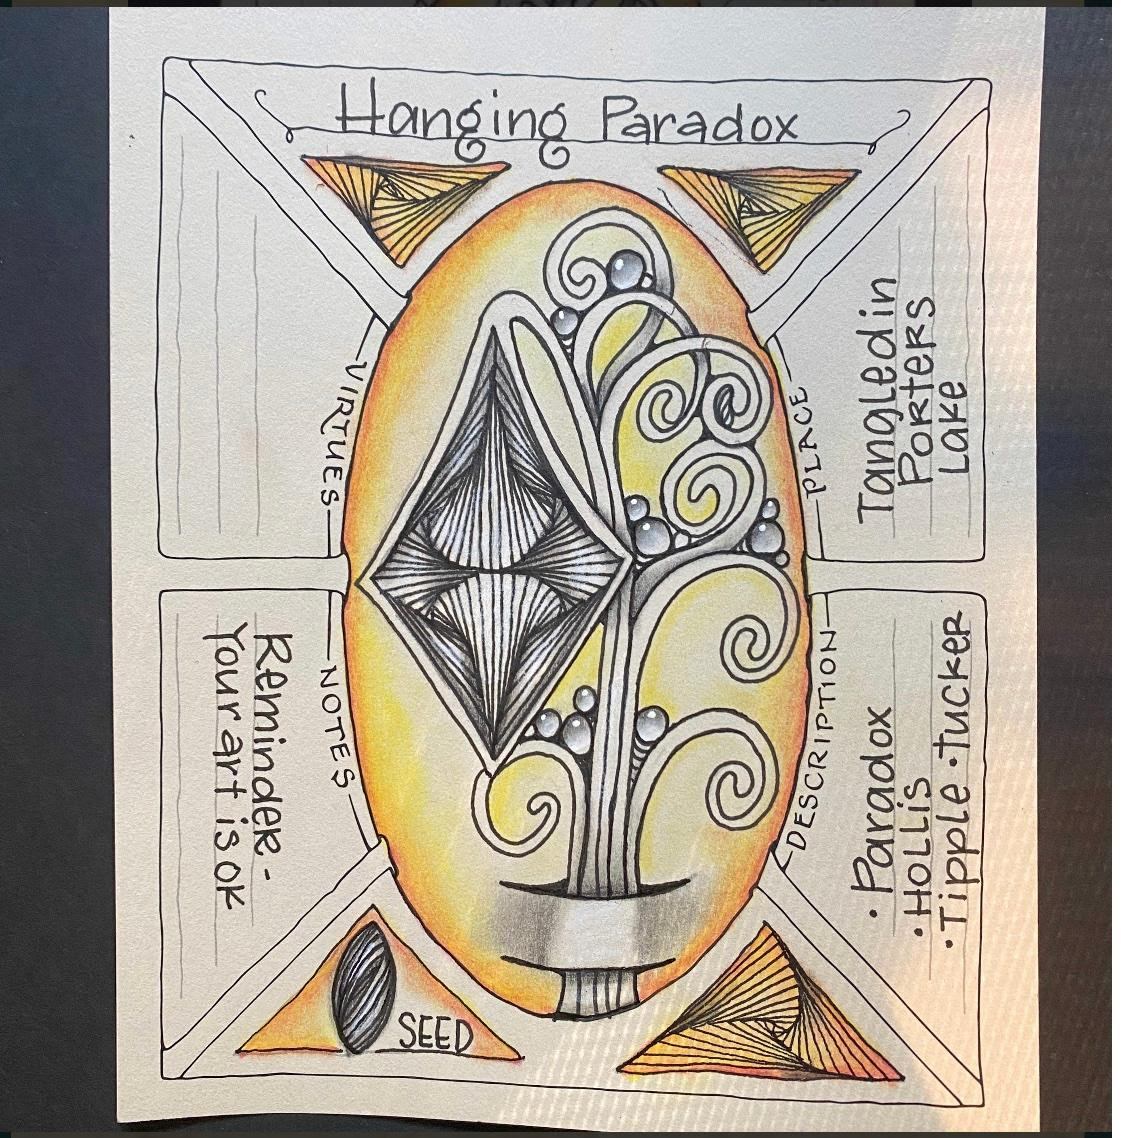 Hanging Paradox
VIRTUES
PLACE
Tangled in
Porters
Lake
NOTES
Reminder-
Your art is ok
DESCRIPTION
• Paradox
• Hollis
• Tipple • Tucker
SEED